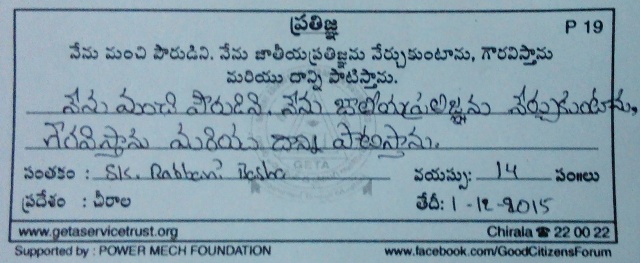 ప్రతిజ్ఞ
P 19
నేను మంచి పౌరుడిని. నేను జాతీయప్రతిజ్ఞను నేర్చుకుంటాను, గౌరవిస్తాను
మరియు దాన్ని పాటిస్తాను.
నేను మంచి పౌరుడిని. నేను జాతీయప్రతిజ్ఞను నేర్చుకుంటాను,
గౌరవిస్తాను మరియు దాన్ని పాటిస్తాను.
సంతకం : Sk. Rabbani వయస్సు: 14 సం॥లు
ప్రదేశం : చీరాల తేదీ: 1-12-2015
www.getaservicetrust.org Chirala ☎ 22 00 22
Supported by : POWER MECH FOUNDATION www.facebook.com/GoodCitizensForum